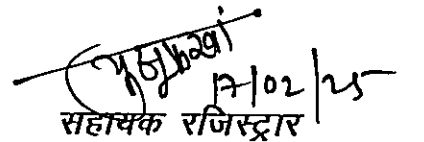 17/02/25
सहायक रजिस्ट्रार